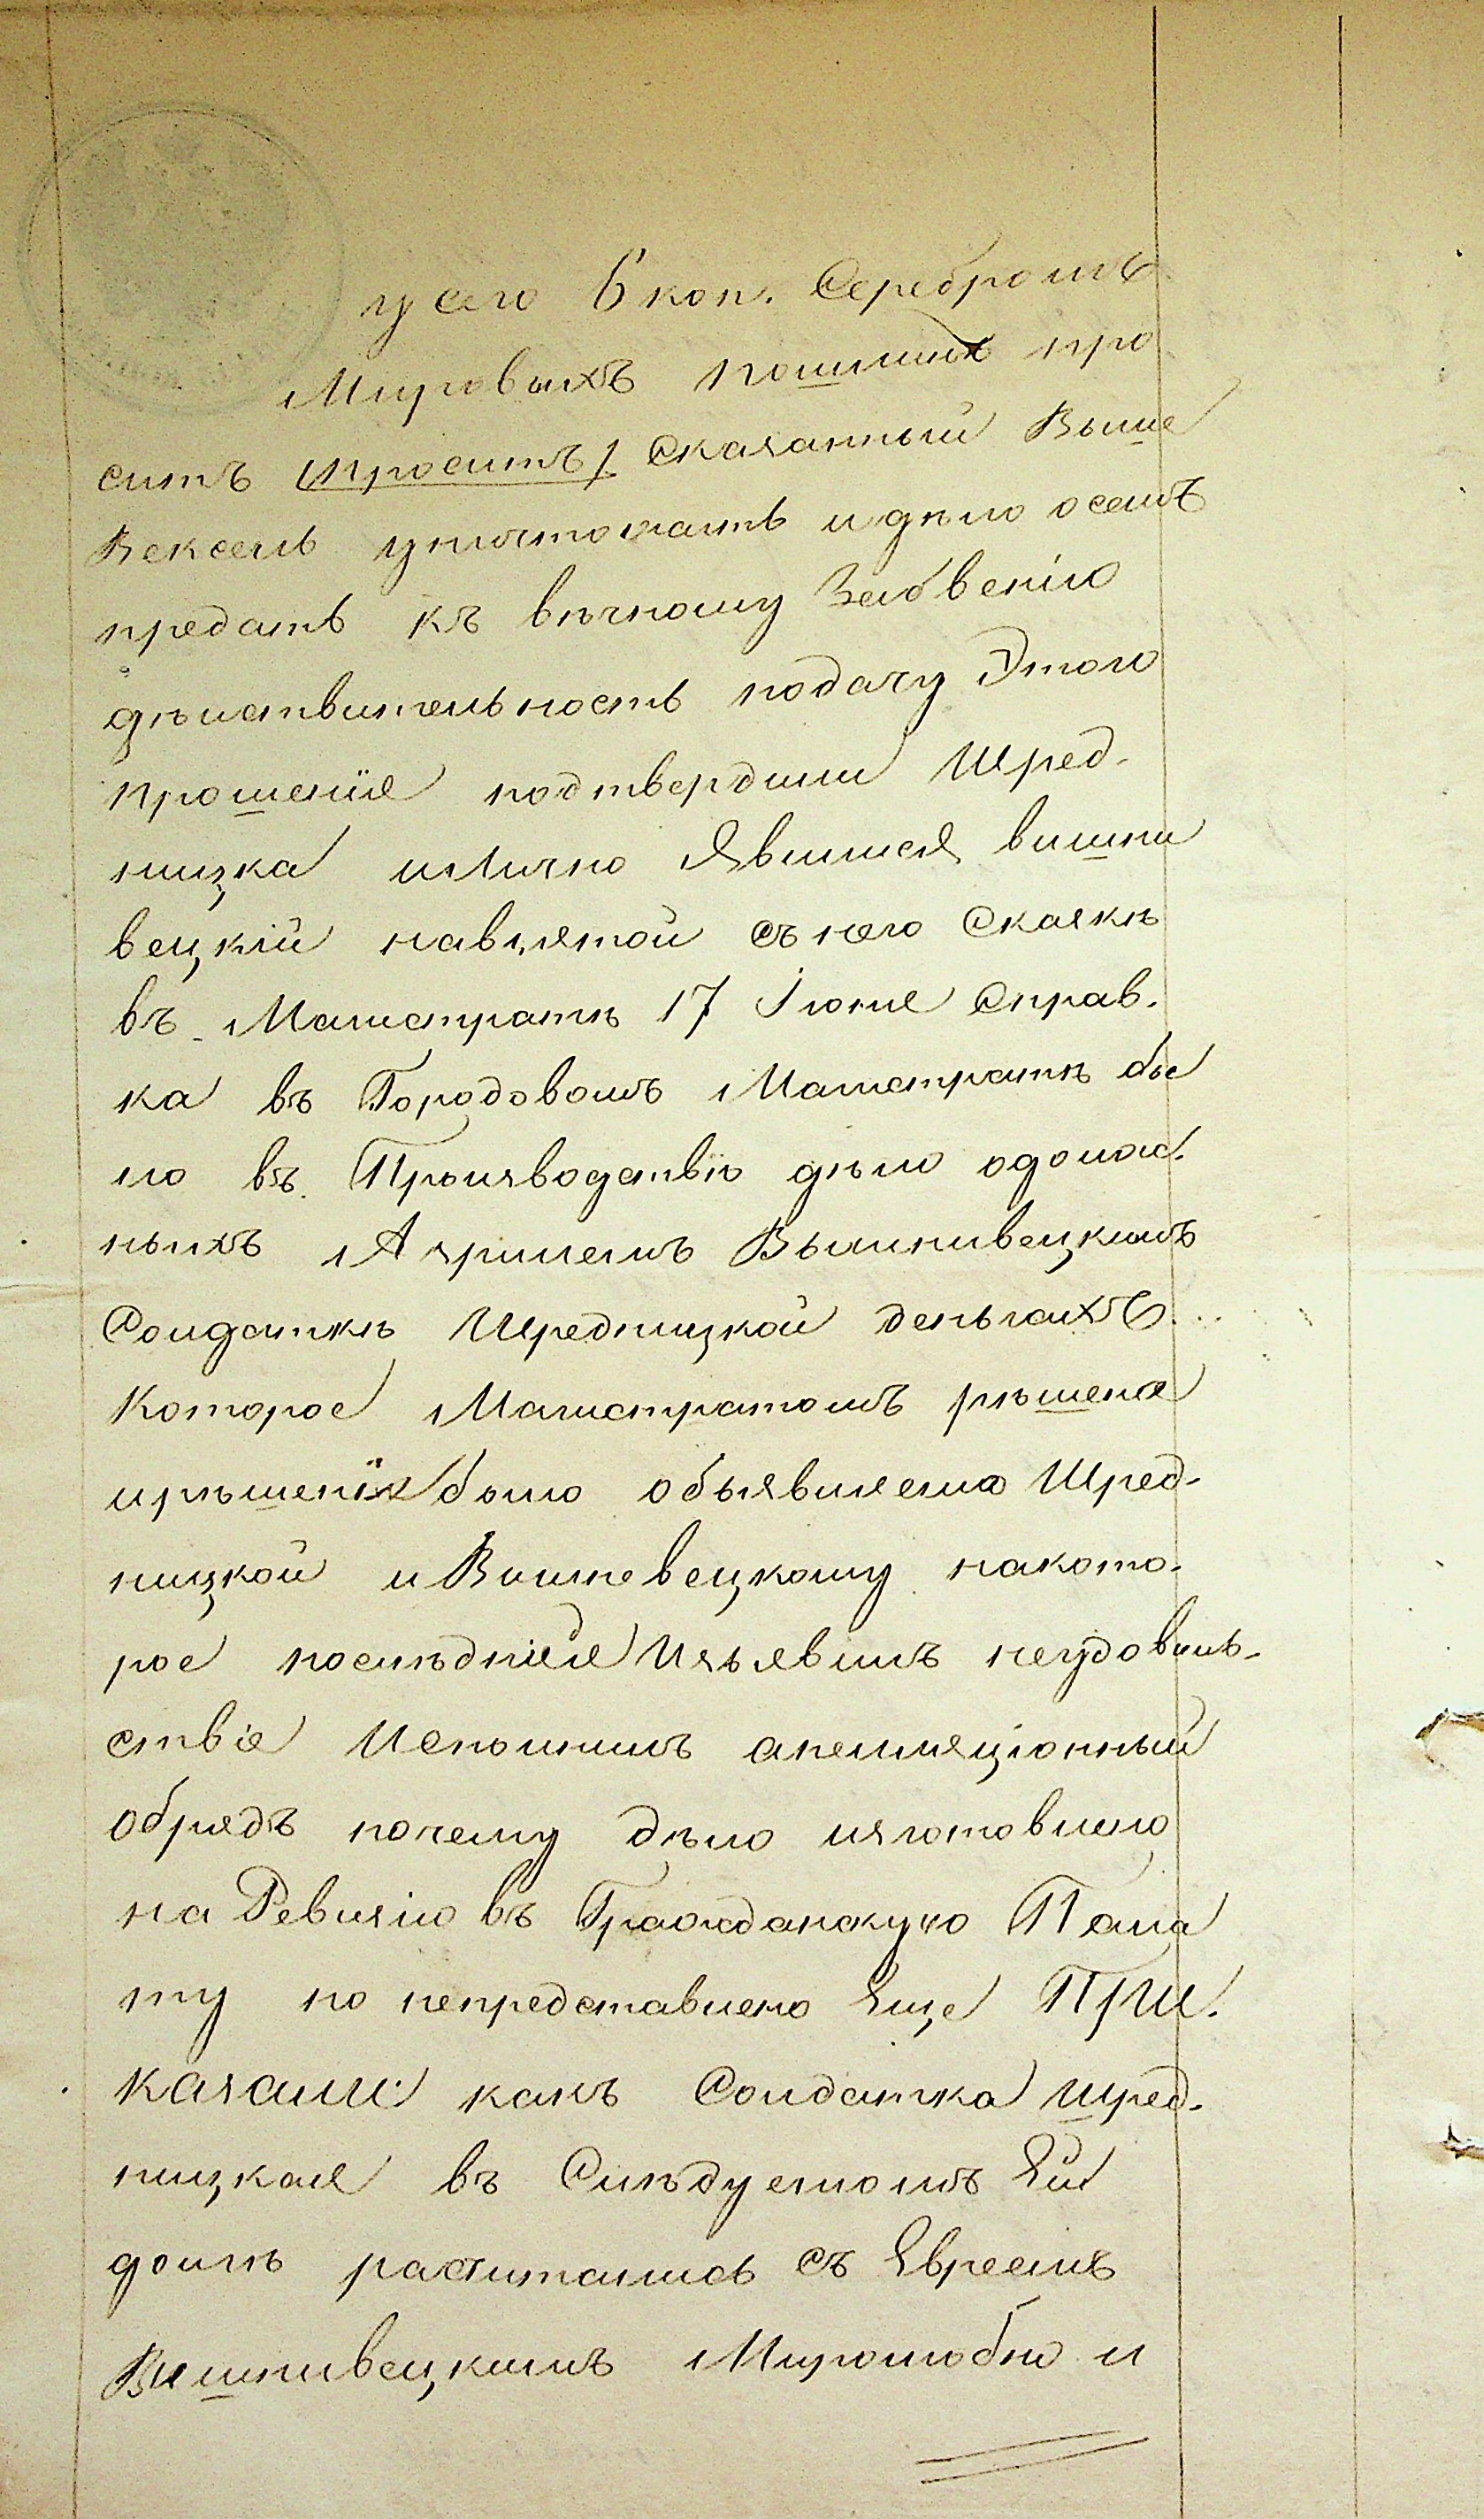 у сего 6 коп. Серебромъ
Мировыхъ пошлинъ про
ситъ /проситъ/ Сказанный Выше
Вексель уничтожать и дѣло осемъ
предать къ вѣчному Забвенію
дѣйствительность подачу Этого
прошеніе подтвердили Шред-
ницка илично Явшися вишни
вецкій навзятой съ него Сказкѣ
въ Магистратѣ 17 Іюня Справ-
ка въ Городовомъ Магистратѣ бы
ло въ Производствѣ дѣло одолж.
ныхъ Азрилемъ Вышнивецкимъ
Солдаткѣ Шредницкой деньгахъ
Которое Магистратомъ рѣшена
ирѣшенія было объявляемо Шред-
ницкой и Вишневецкому накото-
рое послѣдніе Изъявилъ неудоволь-
ствіе Исполнилъ апелляціонный
обрядъ почему дѣло изготовлено
на Ревизію въ Гражданскую Пала
ту но непредставлено Еще При-
казали какъ Солдатка шред-
ницкая въ Слѣдуемомъ Ей
долгѣ расчиталась съ Евреемъ
Вишнивецкимъ Миролюбно и